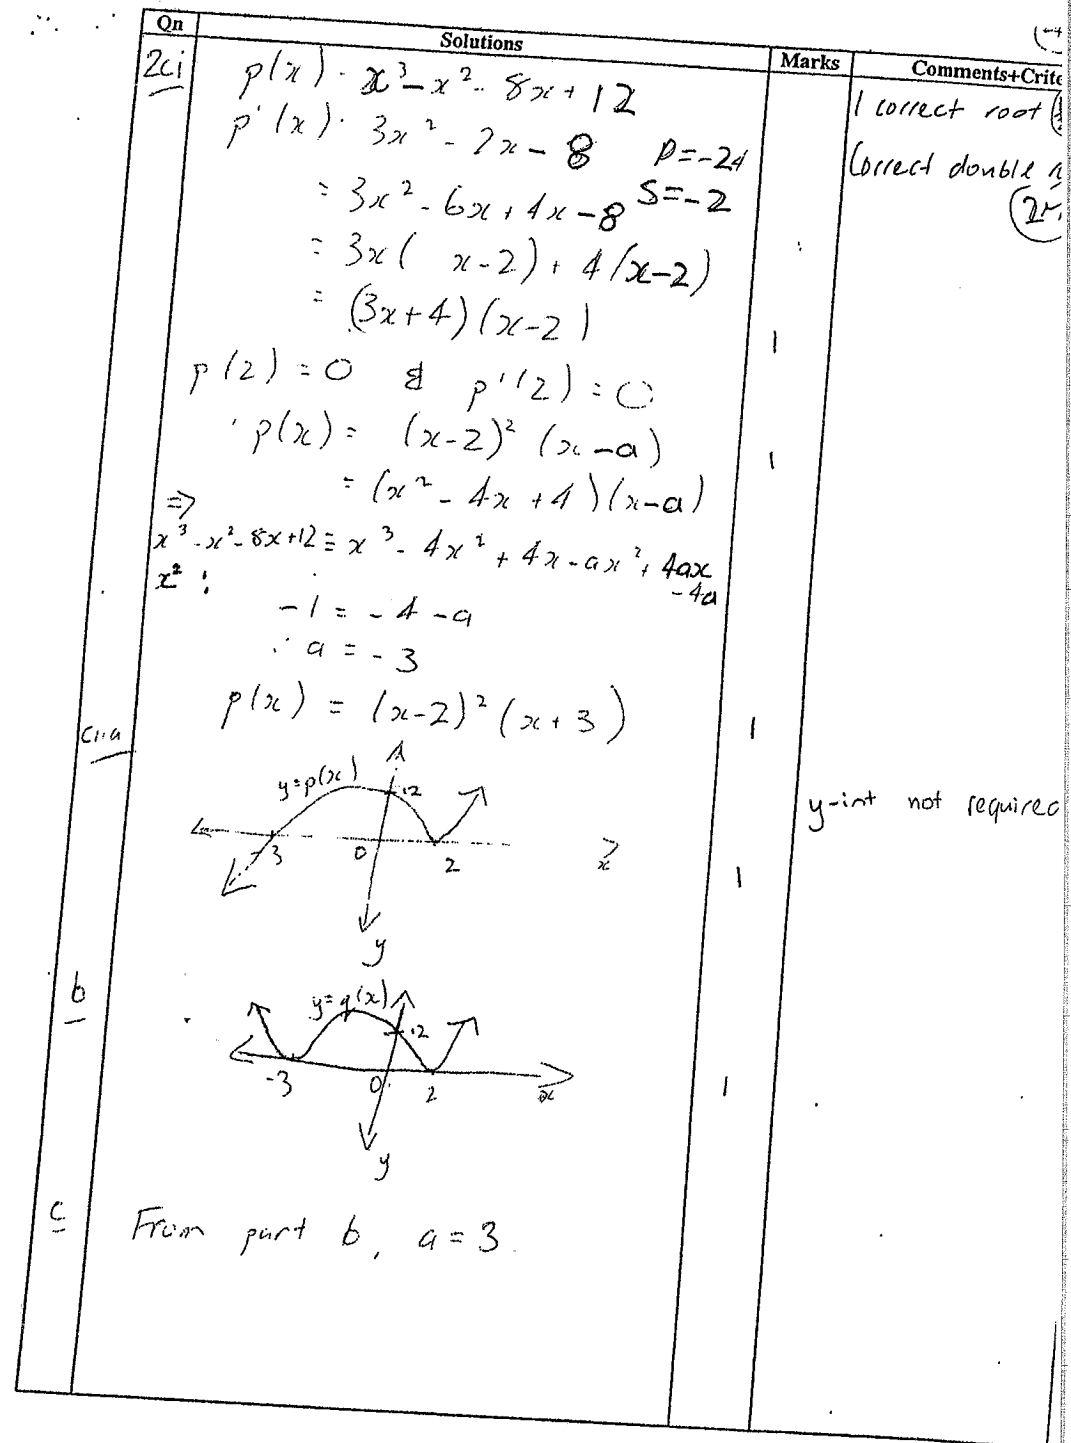 Qn Solutions Marks Comments+Crite
2ci p(x) = x³ - x² - 8x + 12
1 correct root
p'(x) = 3x² - 2x - 8 P=-24
Correct double
= 3x² - 6x + 4x - 8 S=-2
= 3x( x-2) + 4(x-2)
= (3x+4)(x-2) 1
p(2) = 0 & p'(2) = 0
∴ p(x) = (x-2)² (x-a) 1
= (x² - 4x + 4)(x-a)
⇒
x³ - x² - 8x + 12 ≡ x³ - 4x² + 4x - ax² + 4ax
- 4a
x² :
-1 = -4 - a
∴ a = -3
p(x) = (x-2)² (x+3) 1
cii a
y=p(x)
12
y-int not required
-3 0 2 x
1
y
b
y=q(x)
12
-3 0 2 x
1
y
c From part b, a = 3.